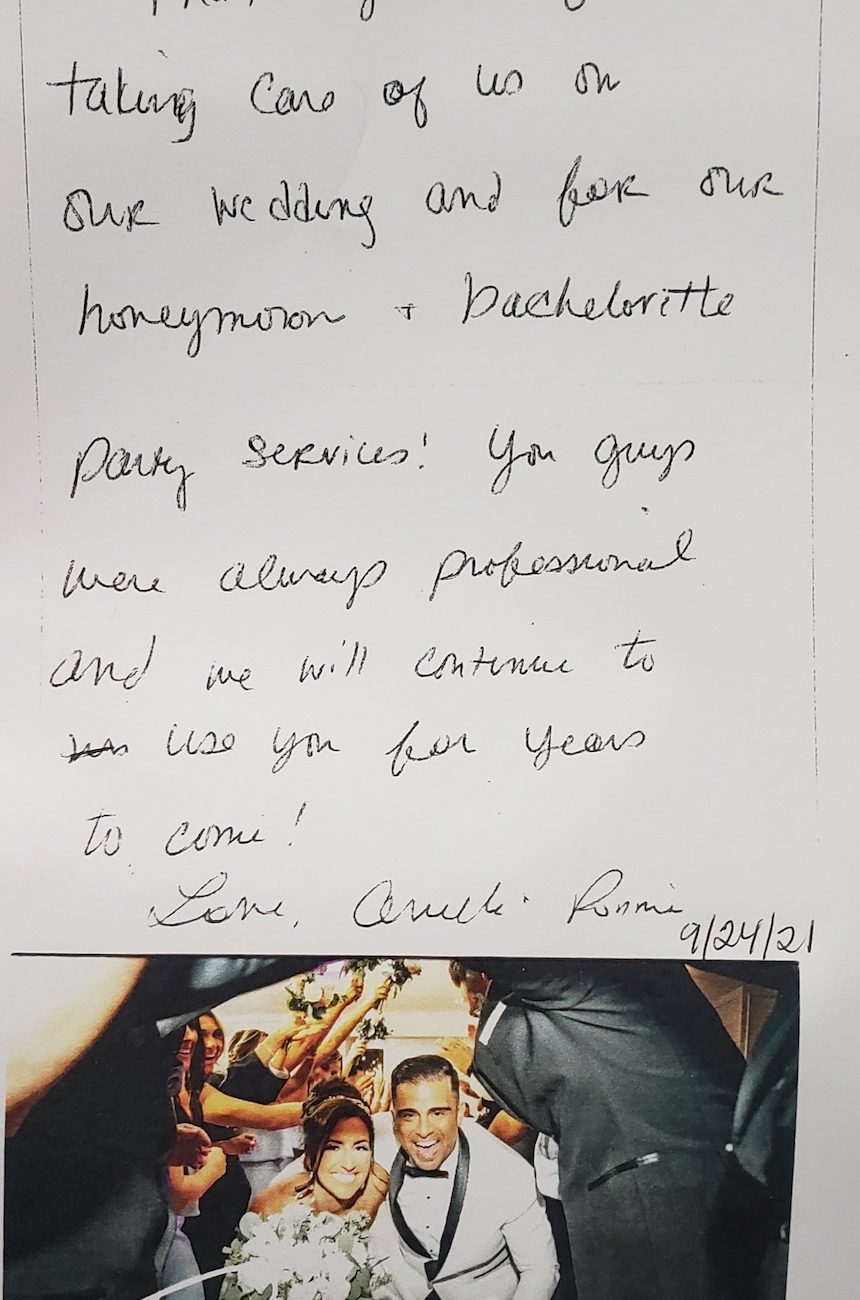 taking care of us on
our wedding and for our
honeymoon + bachelorette
party services! You guys
were always professional
and we will continue to
use you for years
to come!
Love, Ronnie
9/24/21